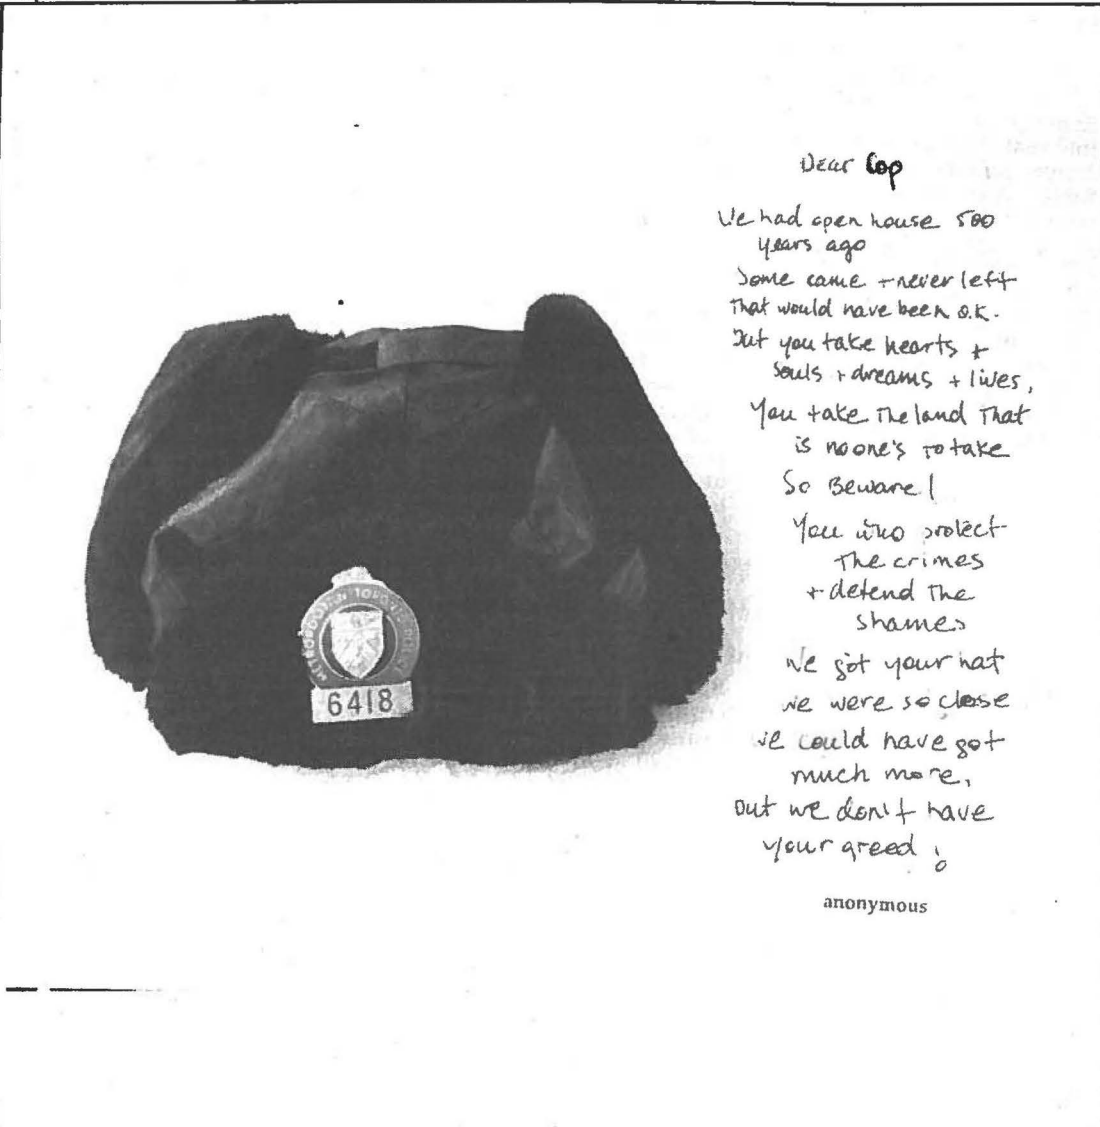 METROPOLITAN TORONTO POLICE
6418
Dear Cop
We had open house 500
years ago
Some came + never left
That would have been o.k.
But you take hearts +
souls + dreams + lives,
You take The land That
is no one's to take
So Beware!
You who protect
The crimes
+ defend The
shames
We got your hat
we were so close
we could have got
much more,
but we don't have
your greed !
anonymous